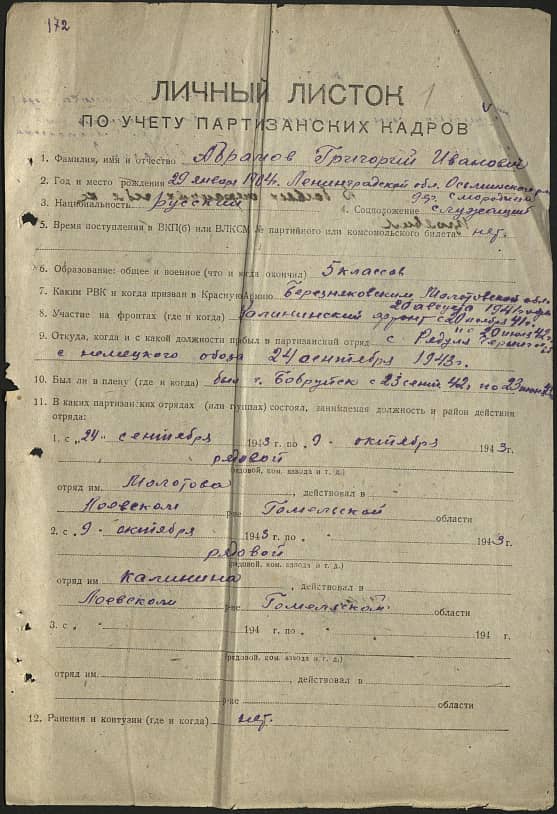 172
ЛИЧНЫЙ ЛИСТОК
ПО УЧЕТУ ПАРТИЗАНСКИХ КАДРОВ
1. Фамилия, имя и отчество Абрамов Григорий Иванович
2. Год и место рождения 29 января 1904г. Ленинградской обл. Осьминского р-
д. Смородина
3. Национальность Русский 4. Соцпорожение служащий
5. Время поступления в ВКП(б) или ВЛКСМ № партийного или комсомольского билета нет.
6. Образование: общее и военное (что и когда окончил) 5 классов
7. Каким РВК и когда призван в Красную Армию Березняковским Молотовской обл.
20 августа 1941 года
8. Участие на фронтах (где и когда) Калининский фронт с 20 ноября 41г.
по 20 июля 42г.
9. Откуда, когда и с какой должности прибыл в партизанский отряд с
с немецкого обоза 24 сентября 1943г.
10. Был ли в плену (где и когда) был г. Бобруйск с 23 сент 42г по 23
11. В каких партизанских отрядах (или группах) состоял, занимаемая должность и район действия
отряда:
1. с „24" сентября 1943 г. по 9 - октября 1943 г.
рядовой
(рядовой, ком. взвода и т. д.)
отряд им. Молотова, действовал в
Лоевском р-не Гомельской области
2. с 9 - октября 1943 г. по " - 1943 г.
рядовой
(рядовой, ком. взвода и т. д.)
отряд им. Калинина, действовал в
Лоевском р-не Гомельской области
3. с " " 194 г. по " " 194 г.
(рядовой, ком. взвода и т. д.)
отряд им. , действовал в
р-не области
12. Ранения и контузии (где и когда) нет.